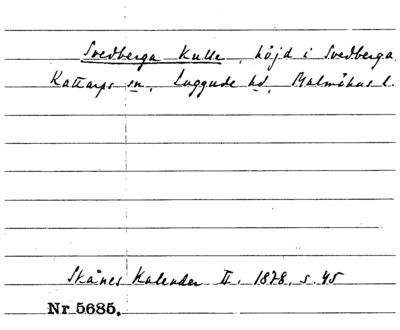 Svedberga Kulle, höjd i Svedberga,
Kattarps sn, Luggude hd, Malmöhus l.
Skånes Kalender II, 1878, s. 45
Nr 5685.